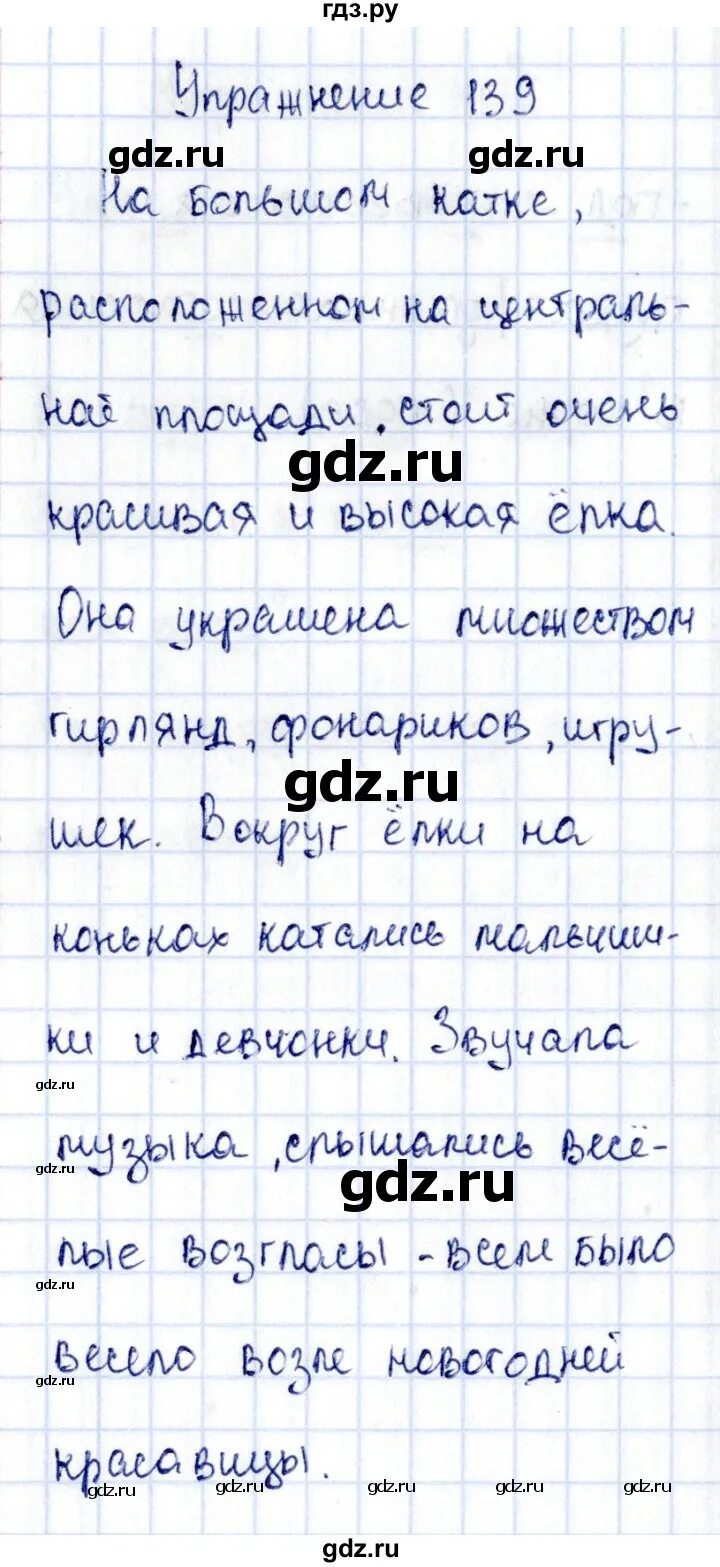 гдз.ру
Упражнение 139
gdz.ru gdz.ru
На большом катке,
расположенном на централь-
ной площади, стоит очень
gdz.ru
красивая и высокая ёлка.
Она украшена множеством
гирлянд, фонариков, игру-
gdz.ru
шек. Вокруг ёлки на
коньках катались мальчиш-
ки и девчонки. Звучала
gdz.ru
музыка, слышались весё-
gdz.ru gdz.ru
лые возгласы - всем было
gdz.ru
весело возле новогодней
gdz.ru
красавицы.
gdz.ru gdz.ru gdz.ru gdz.ru gdz.ru
gdz.ru